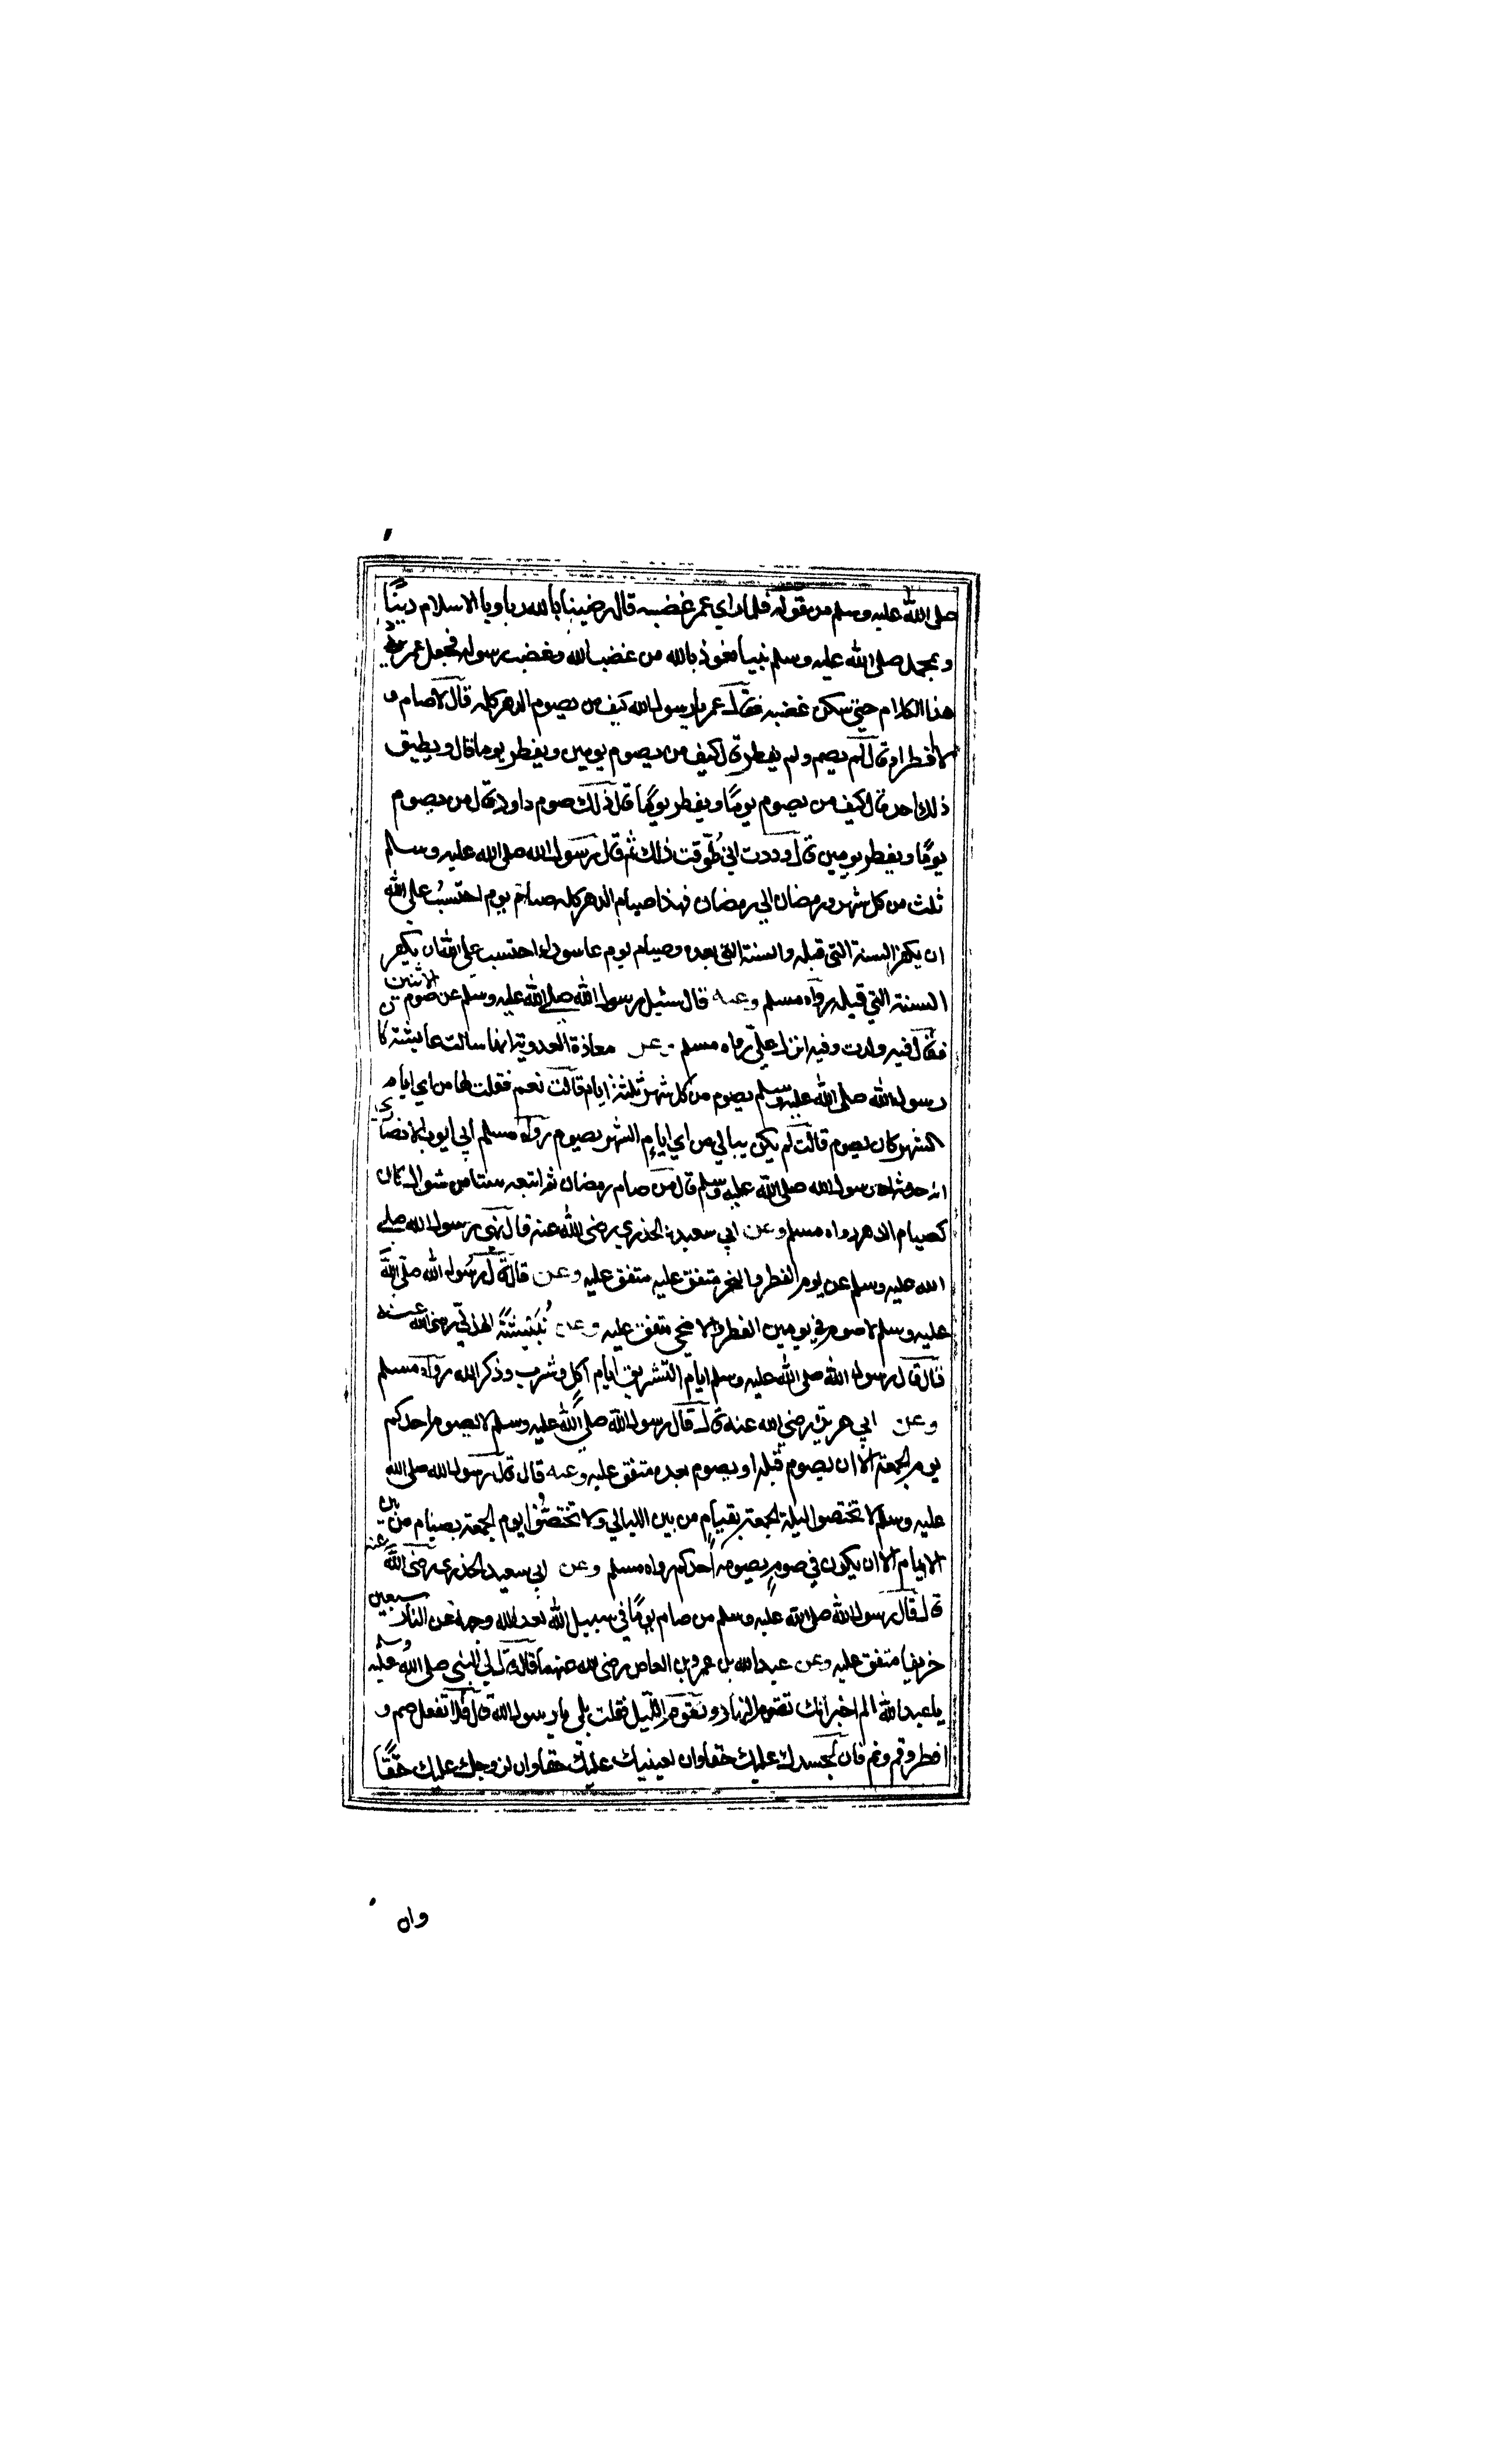 صلى الله عليه وسلم من قوله فلما راي عمر غضبه قال رضينا بالله ربا وبالاسلام دينًا
وبمحمد صلى الله عليه وسلم نبيا نعوذ بالله من غضب الله وغضب رسوله فجعل عمر
هذا الكلام حتى سكن غضبه فقال عمر يا رسول الله كيف من يصوم الدهر كله قال لا صام و
لا افطر او قال لم يصم ولم يفطر قال كيف من يصوم يومين ويفطر يوما قال ويطيق
ذلك احد قال كيف من يصوم يومًا ويفطر يومًا قال ذلك صوم داود قال من يصوم
يومًا ويفطر يومين قال وددت اني طُوّقت ذلك ثم قال رسول الله صلى الله عليه وسلم
ثلث من كل شهر ورمضان الى رمضان فهذا صيام الدهر كله صيام يوم احتسبُ على الله
ان يكفر السنة التي قبله والسنة التي بعده وصيام يوم عاشوراء احتسب على الله ان يكفر
السنة التي قبله رواه مسلم وعنه قال سئيل رسول الله صلى الله عليه وسلم عن صوم الاثنين
فقال فيه ولدت وفيه انزل عليّ رواه مسلم وعن معاذة العدوية انها سالت عايشة كا
رسول الله صلى الله عليه وسلم يصوم من كل شهر ثلثة ايام قالت نعم فقلت لها من اي ايام
الشهر كان يصوم قالت لم يكن يبالي من اي ايام الشهر يصوم رواه مسلم ابي ايوب الانصاري
انه حدثه ان رسول الله صلى الله عليه وسلم قال من صام رمضان ثم اتبعه ستا من شوال كان
كصيام الدهر رواه مسلم وعن ابي سعيد الخدري رضى الله عنه قال نهى رسول الله صلى
الله عليه وسلم عن يوم الفطر والنحر متفق عليه متفق عليه وعن قال قال رسول الله صلى الله
عليه وسلم لا صوم في يومين الفطر والاضحى متفق عليه وعن نُبَيْشَةً الهذلي رضى الله عنه
قال قال رسول الله صلى الله عليه وسلم ايام التشريق ايام اكل وشرب وذكر الله رواه مسلم
وعن ابي هريرة رضي الله عنه قال قال رسول الله صلى الله عليه وسلم لا يصوم احدكم
يوم الجمعة الا ان يصوم قبله او يصوم بعده متفق عليه وعنه قال قال رسول الله صلى الله
عليه وسلم لا تختصوا ليلة الجمعة بقيام من بين الليالي ولا تختصّوا يوم الجمعة بصيام من بين
الايام الا ان يكون في صوم يصومه احدكم رواه مسلم وعن ابي سعيد الخدري رضى الله عنه
قال قال رسول الله صلى الله عليه وسلم من صام يومًا في سبيل الله بعد الله وجهه عن النار سبعين
خريفا متفق عليه وعن عبد الله بن عمرو بن العاص رضى الله عنهما قال قال لي النبي صلى الله عليه وسلم
يا عبد الله الم اخبر انك تصوم النهار وتقوم الليل فقلت بلى يا رسول الله قال فلا تفعل صم و
افطر وقم ونم فان لجسدك عليك حقا وان لعينيك عليك حقا وان لزوجك عليك حقًّا
وان